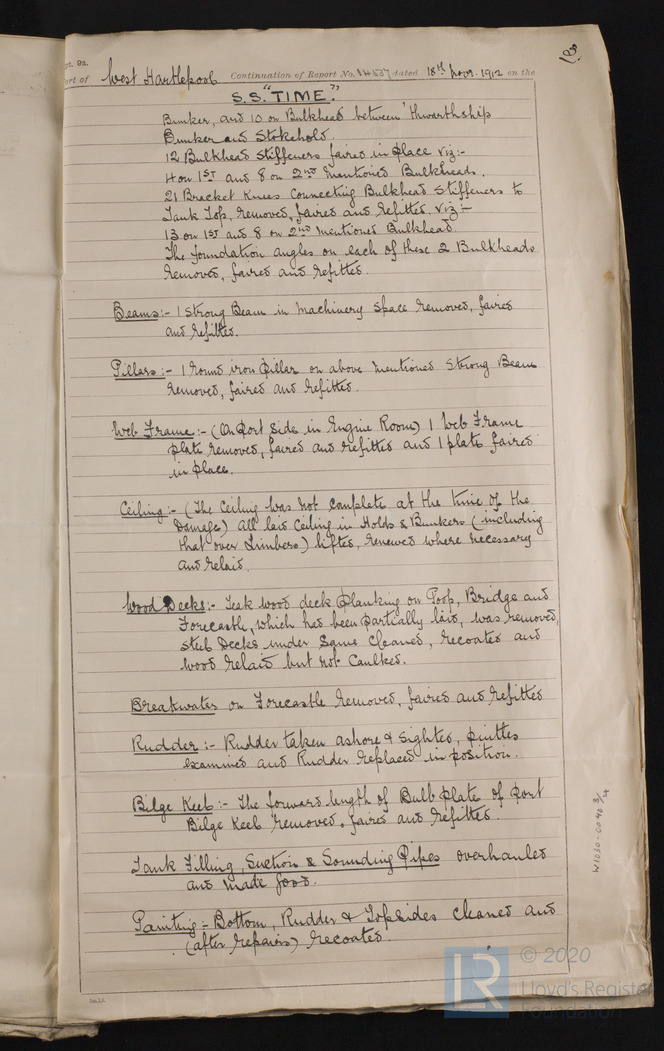 Rpt. 9a.
Port of West Hartlepool Continuation of Report No. dated 18th Novr. 1912 on the
S.S. "TIME."
Bunker, and 10 on Bulkhead between 'thwarthship
Bunker and Stokehold.
12 Bulkhead Stiffeners faired in place viz:-
4 on 1st and 8 on 2nd mentioned Bulkheads.
21 Bracket Knees Connecting Bulkhead Stiffeners to
Tank Top, removed, faired and refitted, viz:-
13 on 1st and 8 on 2nd mentioned Bulkhead.
The foundation angles on each of these 2 Bulkheads
removed, faired and refitted.
Beams:- 1 Strong Beam in Machinery Space removed, faired
and refitted.
Pillars:- 1 round iron Pillar on above mentioned Strong Beam
removed, faired and refitted.
Web Frame:- (On Port Side in Engine Room) 1 Web Frame
plate removed, faired and refitted and 1 plate faired
in place.
Ceiling:- (The Ceiling was not complete at the time of the
Damage) All laid Ceiling in Holds & Bunkers (including
that over Limbers) lifted, renewed where necessary
and relaid.
Wood Decks:- Teak wood deck Planking on Poop, Bridge and
Forecastle, which had been partially laid, was removed,
Steel Decks under Same cleaned, recoated and
wood relaid but not Caulked.
Breakwater on Forecastle removed, faired and refitted
Rudder:- Rudder taken ashore & Sighted, pintles
examined and Rudder replaced in position.
Bilge Keel:- The forward length of Bulb plate of port
Bilge Keel removed, faired and refitted.
Tank Filling, Suction & Sounding Pipes overhauled
and made good.
Painting:- Bottom, Rudder & Topsides cleaned and
(after repairs) recoated.
W1030-0040 3/4
© 2020
LR
Lloyd's Register
Foundation